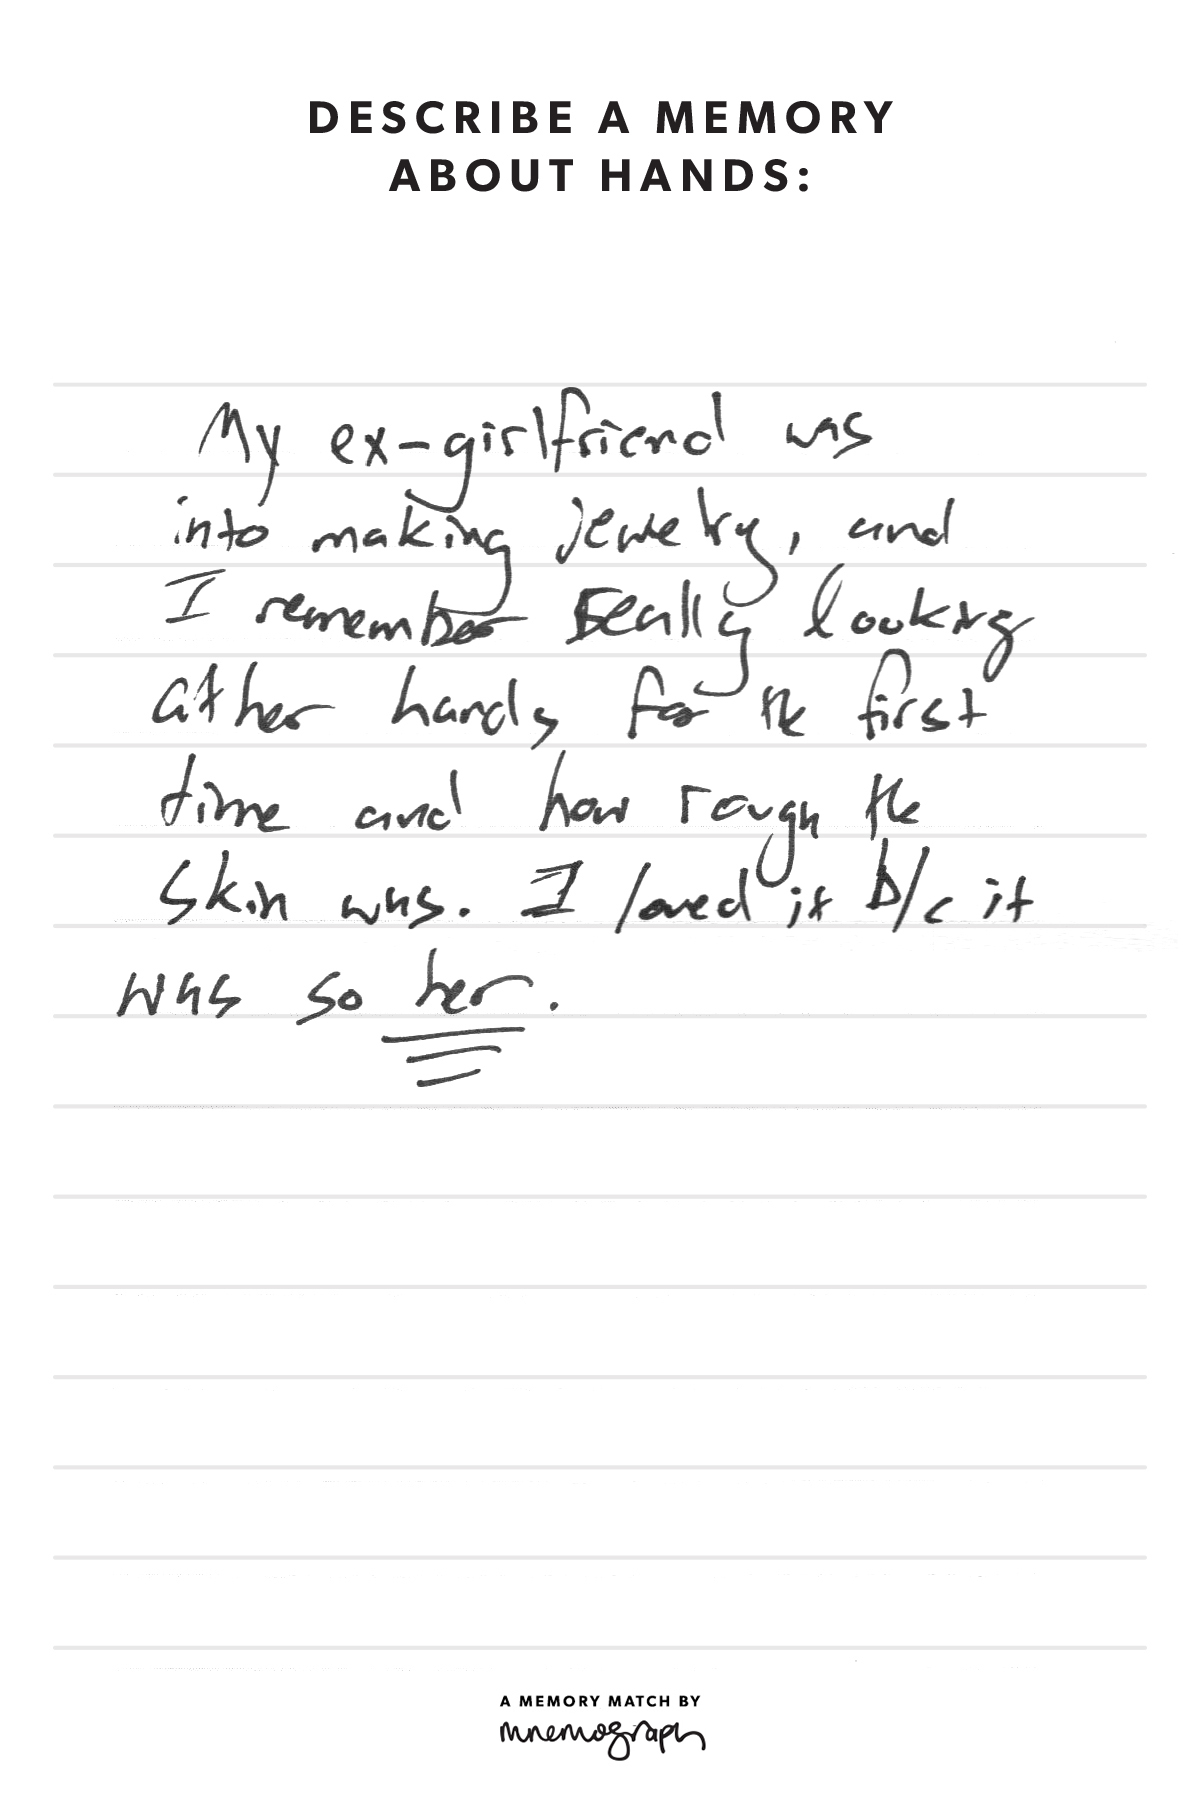 DESCRIBE A MEMORY
ABOUT HANDS:
My ex-girlfriend was
into making jewelry, and
I remember really looking
at her hands for the first
time and how rough the
skin was. I loved it b/c it
was so her.
A MEMORY MATCH BY
mnemograph